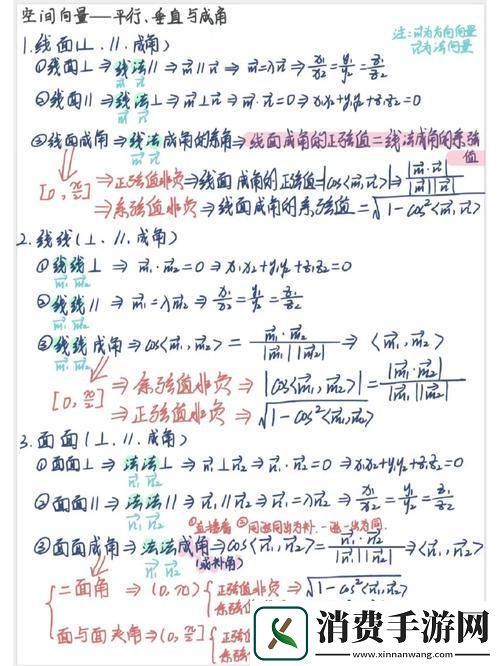 空间向量——平行、垂直与成角
注: m⃗为方向向量
n⃗为法向量
1.线面(⊥、//、成角)
①线面⊥⇒线法//⇒m⃗//n⃗⇒m⃗=λn⃗⇒x₁/x₂=y₁/y₂=z₁/z₂
m⃗ n⃗
②线面//⇒线法⊥⇒m⃗⊥n⃗⇒m⃗·n⃗=0⇒x₁x₂+y₁y₂+z₁z₂=0
m⃗ n⃗
③线面成角⇒线法成角的余角⇒线面成角的正弦值=线法成角的余弦值
m⃗ n⃗
[0,π/2]⇒正弦值非负⇒线面成角的正弦值=|cos<m⃗,n⃗>|⇒|m⃗·n⃗|/|m⃗||n⃗|
⇒余弦值非负⇒线面成角的余弦值=√1-cos²<m⃗,n⃗>
2.线线(⊥、//、成角)
①线线⊥⇒m⃗₁·m⃗₂=0⇒x₁x₂+y₁y₂+z₁z₂=0
m⃗₁ m⃗₂
②线线//⇒m⃗₁=λm⃗₂⇒x₁/x₂=y₁/y₂=z₁/z₂
m⃗₁ m⃗₂
③线线成角⇒cos<m⃗₁,m⃗₂>=m⃗₁·m⃗₂/|m⃗₁||m⃗₂|⇒<m⃗₁,m⃗₂>
m⃗₁ m⃗₂
[0,π/2]⇒余弦值非负⇒|cos<m⃗₁,m⃗₂>|=|m⃗₁·m⃗₂|/|m⃗₁||m⃗₂|
⇒正弦值非负⇒√1-cos²<m⃗₁,m⃗₂>
3.面面(⊥、//、成角)
①面面⊥⇒法法⊥⇒n⃗₁⊥n⃗₂⇒n⃗₁·n⃗₂=0⇒x₁x₂+y₁y₂+z₁z₂=0
n⃗₁ n⃗₂
②面面//⇒法法//⇒n⃗₁//n⃗₂⇒n⃗₁=λn⃗₂⇒x₁/x₂=y₁/y₂=z₁/z₂
n⃗₁ n⃗₂
①直接看 ②同进同出为补.一进一出为同.
③面面成角⇒法法成角⇒cos<n⃗₁,n⃗₂>=n⃗₁·n⃗₂/|n⃗₁||n⃗₂|⇒<n⃗₁,n⃗₂>
n⃗₁ n⃗₂ (或补角)
二面角⇒(0,π){正弦值非负⇒√1-cos²<n⃗₁,n⃗₂>
余弦值
面与面夹角⇒(0,π/2]{正弦值
余弦
消费手游网
www.xinnanwang.com